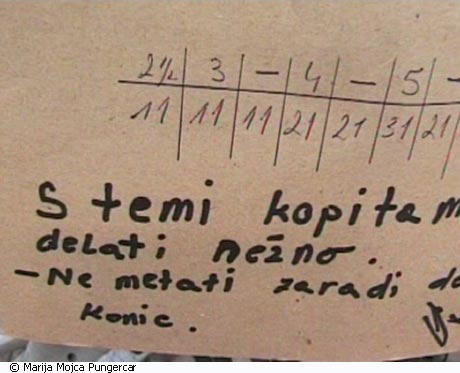 2½ 3 – 4 – 5 –
11 11 11 21 21 31 21
S temi kopitam
delati nežno.
– Ne metati zaradi do
konic.
© Marija Mojca Pungercar